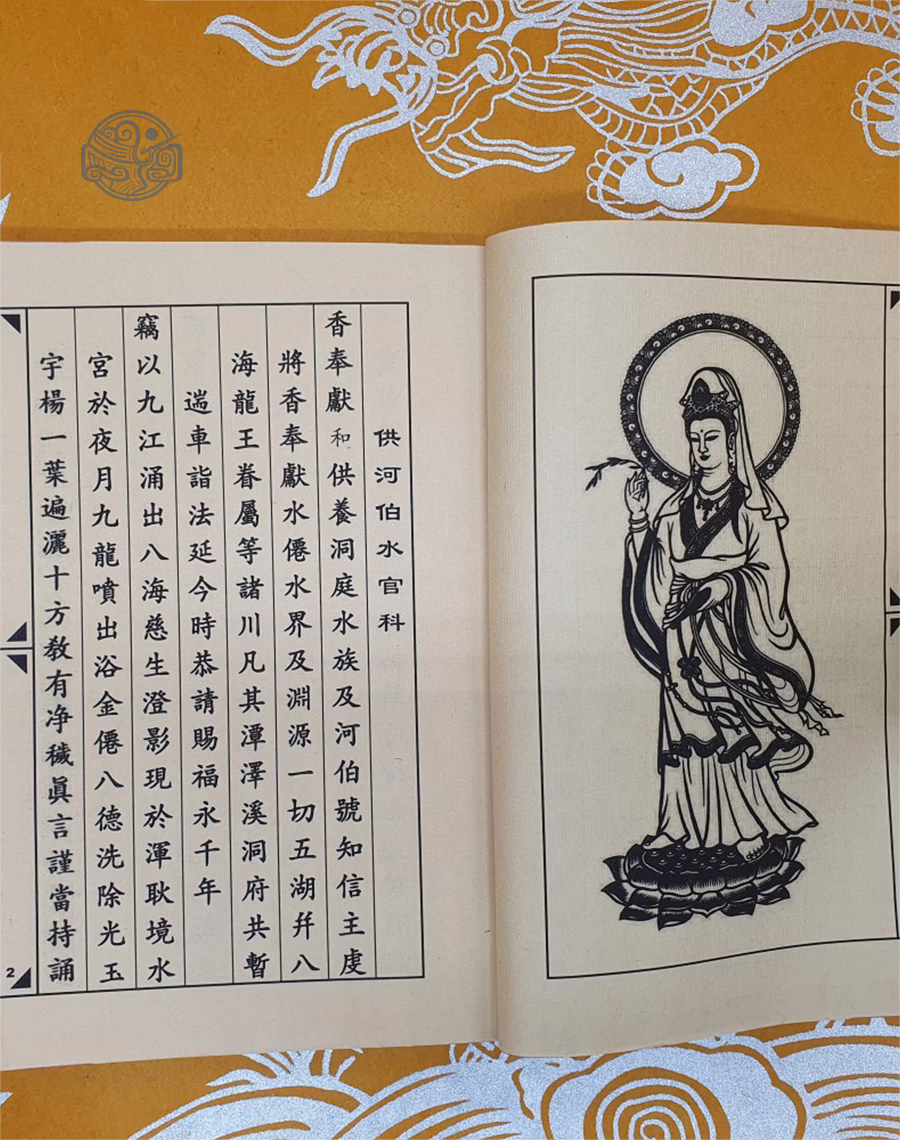 供河伯水官科
香奉獻和供養洞庭水族及河伯號知信主虔
將香奉獻水僊水界及淵源一切五湖幷八
海龍王眷屬等諸川凡其潭澤溪洞府共暫
遄車詣法延今時恭請賜福永千年
竊以九江涌出八海慈生澄影現於渾耿境水
宮於夜月九龍噴出浴金僊八德洗除光玉
宇楊一葉遍灑十方敎有净穢眞言謹當持誦
2